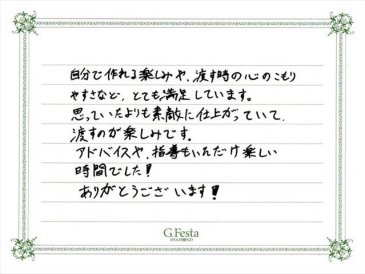 自分で作れる楽しみや、渡す時の心のこもり
やすさなど、とても満足しています。
思っていたよりも素敵に仕上がっていて、
渡すのが楽しみです。
アドバイスや、指導もいただけ楽しい
時間でした!
ありがとうございます!
G.Festa
DIAMOND